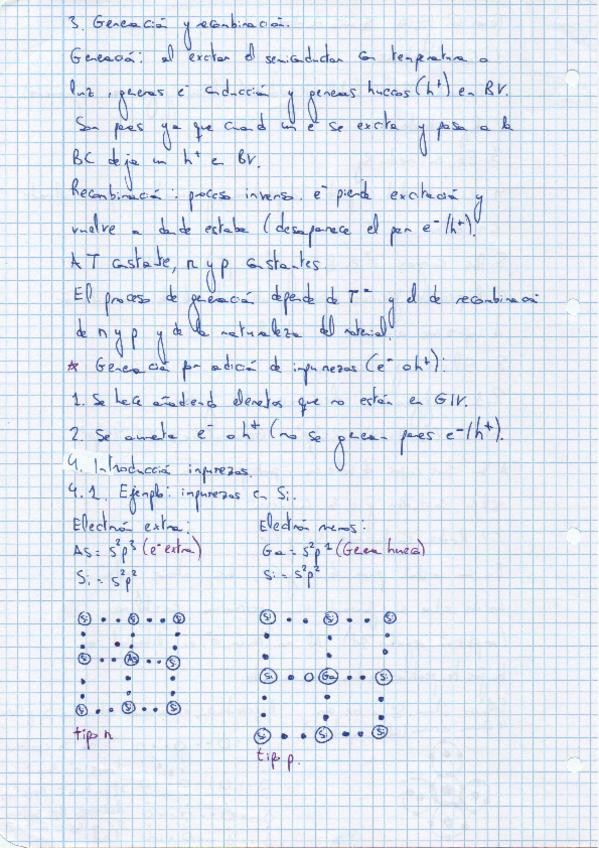 3. Generación y recombinación.
Generación: al excitar el semiconductor con temperatura o
luz, generas e⁻ conducción y generas huecos (h⁺) en BV.
Son pares ya que cuand un e⁻ se excita y pasa a la
BC deja un h⁺ en BV.
Recombinación: proceso inverso. e⁻ pierde excitación y
vuelve a donde estaba (desaparece el par e⁻/h⁺).
A T constante, n y p constantes.
El proceso de generación depende de Tª y el de recombinación
de n y p y de la naturaleza del material.
* Generación por adición de impurezas (e⁻ o h⁺):
1. Se hace añadiendo elementos que no están en GIV.
2. Se aumenta e⁻ o h⁺ (no se generan pares e⁻/h⁺).
4. Introducción impurezas.
4.1. Ejemplo: impurezas en Si.
Electrón extra: Electrón menos:
As = s²p³ (e⁻ extra) Ga = s²p¹ (Genera hueco)
Si = s²p² Si = s²p²
Si Si Si Si Si Si
Si As Si Si Ga Si
Si Si Si Si Si Si
tipo n
tipo p.